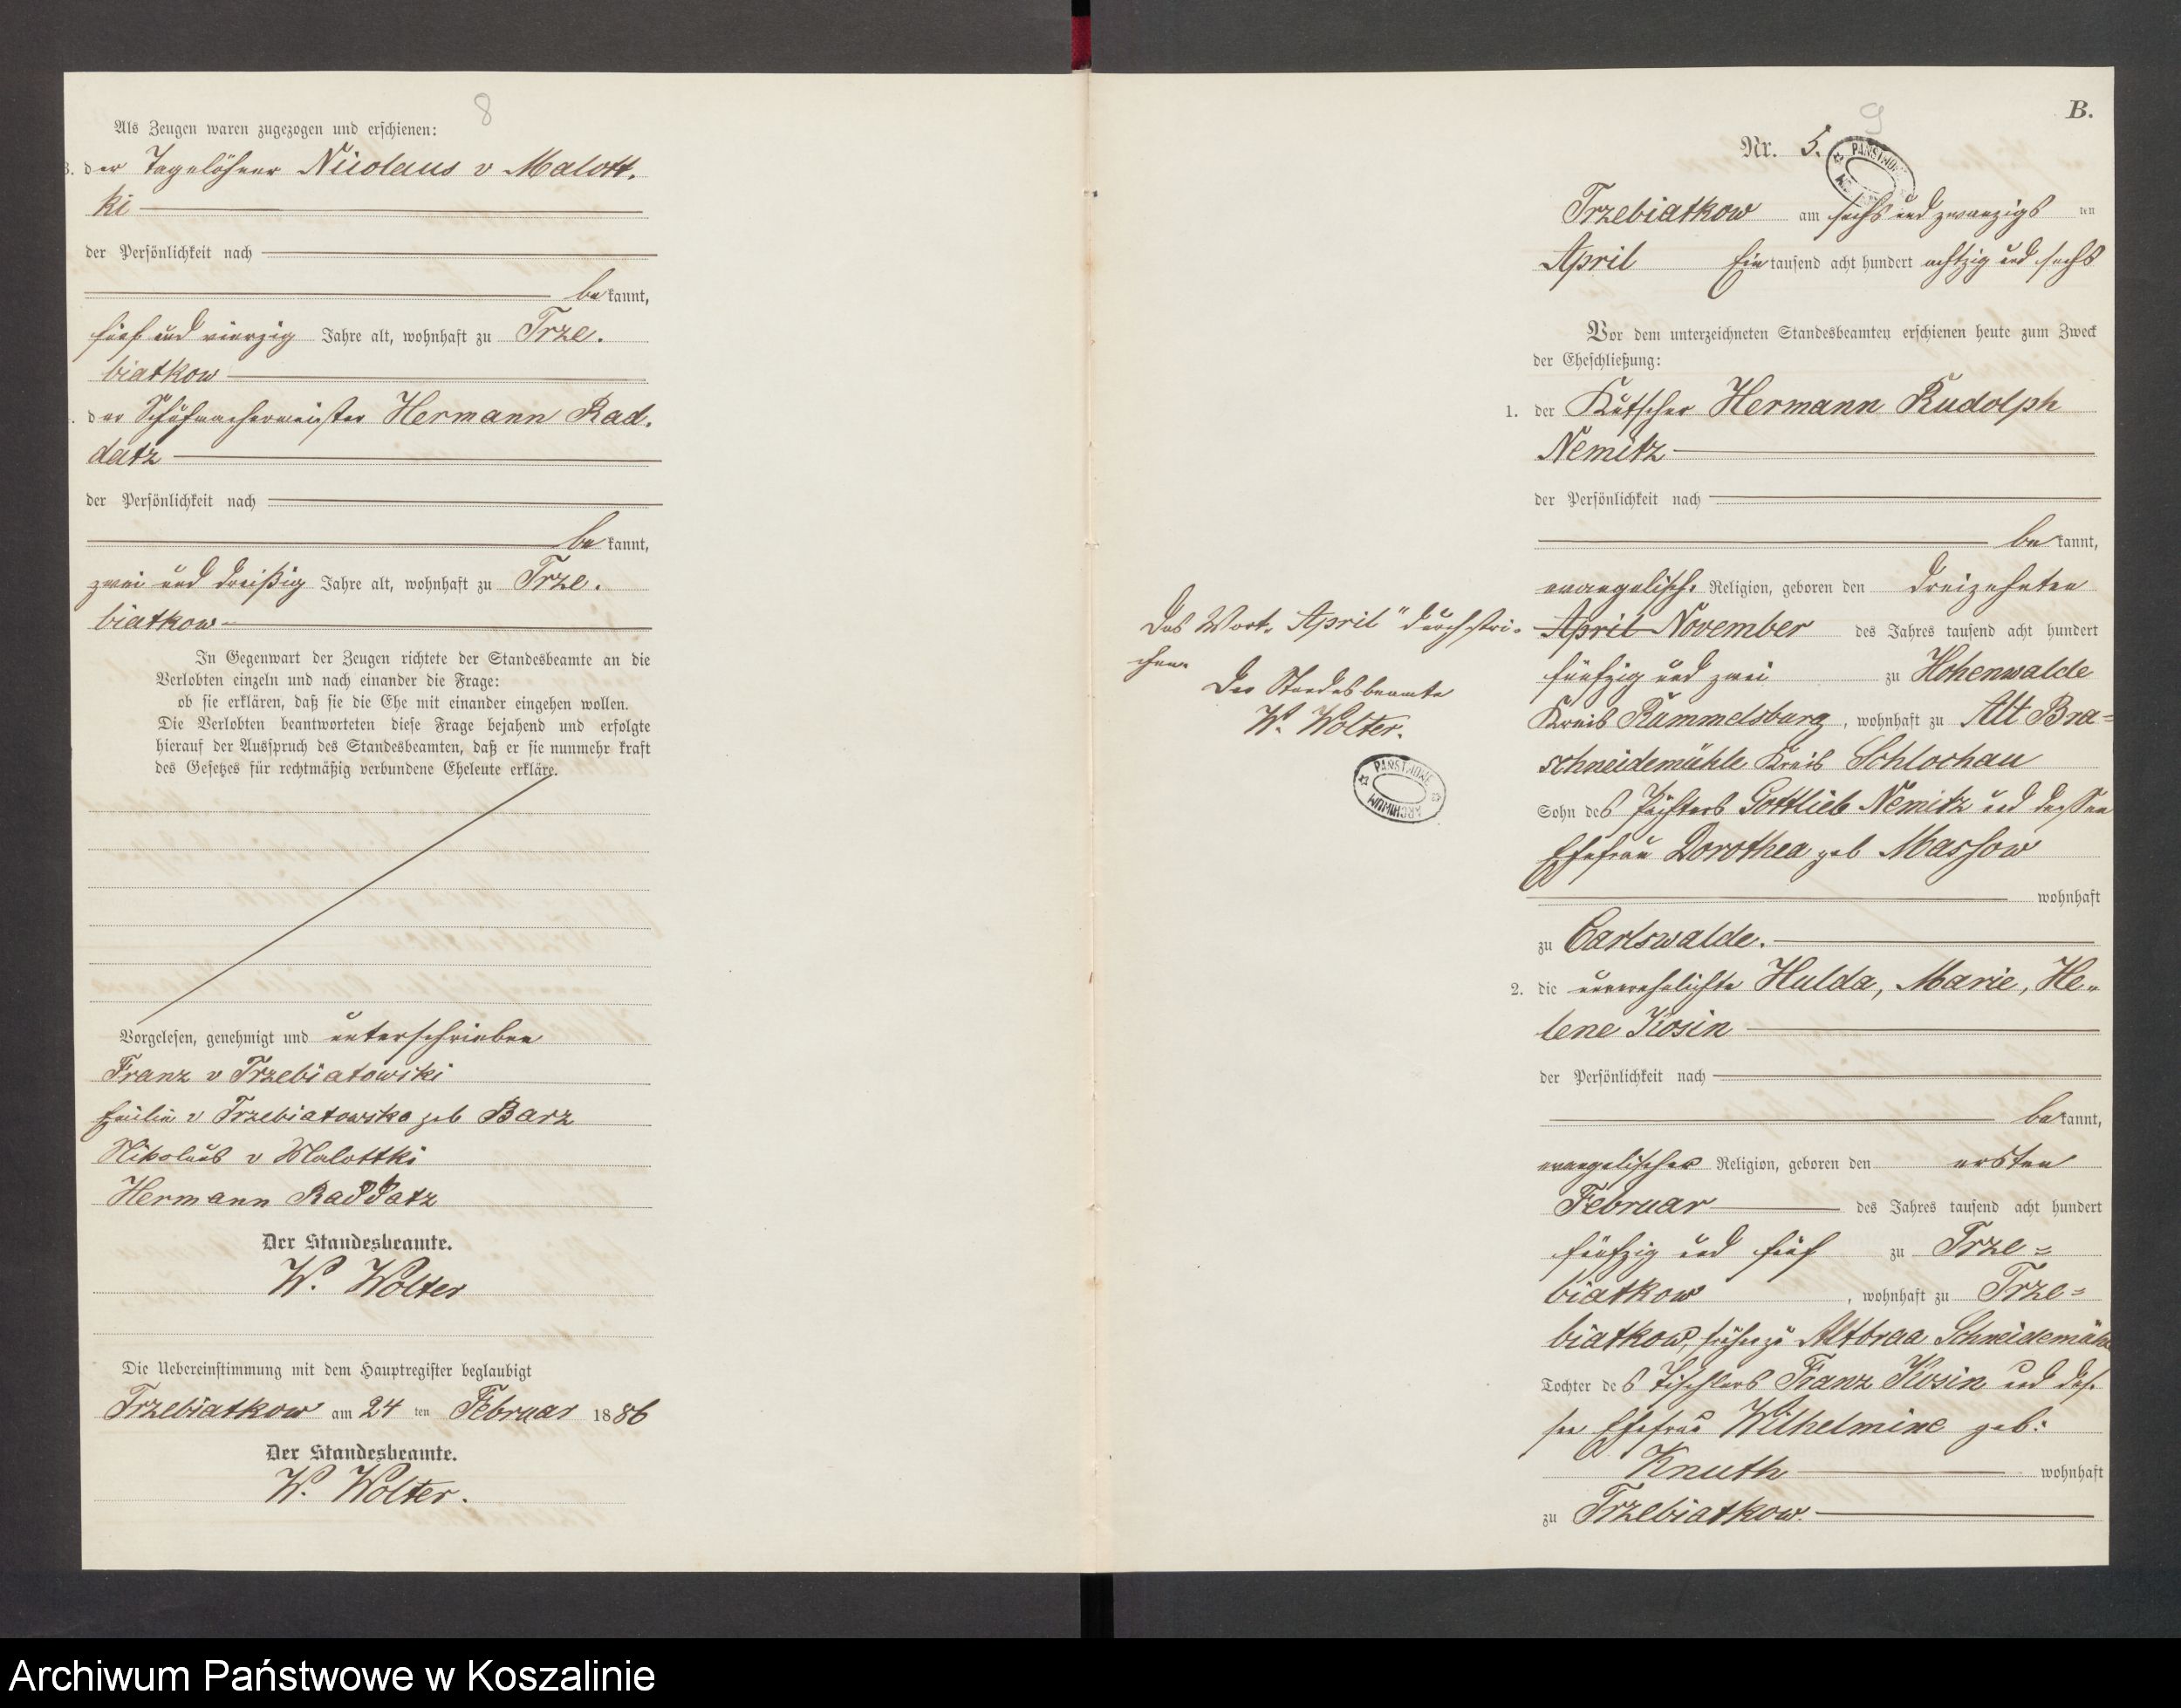 8
Als Zeugen waren zugezogen und erschienen:
3. der Tagelöhner Nicolaus v Malott.
ki
der Persönlichkeit nach
bekannt,
fünf und vierzig Jahre alt, wohnhaft zu Trze.
biatkow
der Schuhmachermeister Hermann Rad.
datz
der Persönlichkeit nach
bekannt,
zwei und dreißig Jahre alt, wohnhaft zu Trze.
biatkow
In Gegenwart der Zeugen richtete der Standesbeamte an die
Verlobten einzeln und nach einander die Frage:
ob sie erklären, daß sie die Ehe mit einander eingehen wollen.
Die Verlobten beantworteten diese Frage bejahend und erfolgte
hierauf der Ausspruch des Standesbeamten, daß er sie nunmehr kraft
des Gesetzes für rechtmäßig verbundene Eheleute erkläre.
Vorgelesen, genehmigt und unterschrieben
Franz v Trzebiatowski
Emilie v Trzebiatowska geb Barz
Nikolaus v Malottki
Hermann Raddatz
Der Standesbeamte.
W. Wolter
Die Uebereinstimmung mit dem Hauptregister beglaubigt
Trzebiatkow am 24 ten Februar 1886
Der Standesbeamte.
W. Wolter.
Das Wort „April" durchstri-
chen.
Der Standesbeamte
W. Wolter.
PAŃSTWOWE
ARCHIWUM
9
B.
Nr. 5.
PAŃSTWOWE
Trzebiatkow am sechs und zwanzigs ten
April Ein tausend acht hundert achtzig und sechs
Vor dem unterzeichneten Standesbeamten erschienen heute zum Zweck
der Eheschließung:
1. der Kutscher Hermann Rudolph
Nemitz
der Persönlichkeit nach
bekannt,
evangelisch. Religion, geboren den dreizehnten
April November des Jahres tausend acht hundert
fünfzig und zwei zu Hohenwalde
Kreis Rummelsburg, wohnhaft zu Alt Bra=
schneidemühle Kreis Schlochau
Sohn des Pächters Gottlieb Nemitz und dessen
Ehefrau Dorothea geb Massow
wohnhaft
zu Carlswalde.
2. die unverehelichte Hulda, Marie, He-
lene Kosin
der Persönlichkeit nach
bekannt,
evangelischer Religion, geboren den ersten
Februar des Jahres tausend acht hundert
fünfzig und fünf zu Trze=
biatkow, wohnhaft zu Trze=
biatkow, früher zu Altbraa Schneidemühle
Tochter des Tischlers Franz Kosin und des.
sen Ehefrau Wilhelmine geb:
Knuth wohnhaft
zu Trzebiatkow.
Archiwum Państwowe w Koszalinie